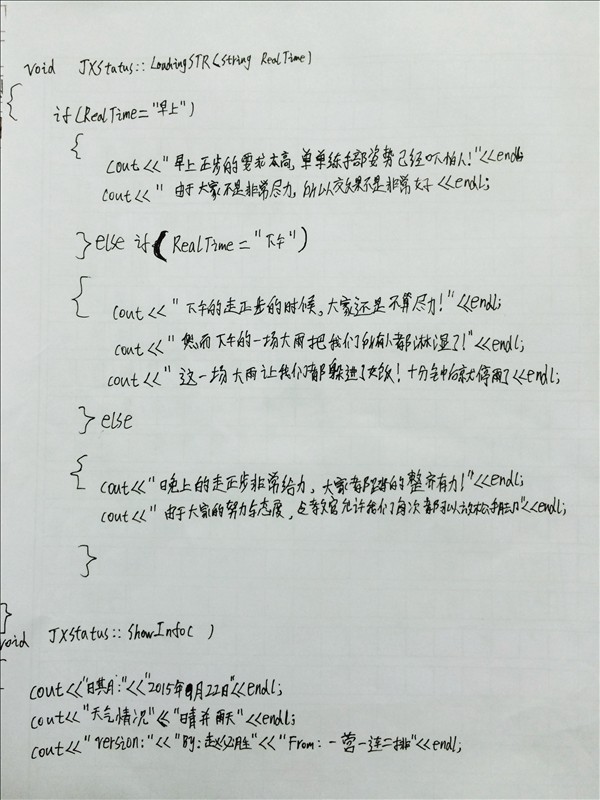 void JXStatus::LoadingSTR(string RealTime)
{
if(RealTime="早上")
{
cout<<"早上正步的要求本高,单单练手部姿势已经吓怕人!"<<endl;
cout<<"由于大家不是非常尽力,所以效果不是非常好<<endl;
}else if(RealTime="下午")
{
cout<<"下午的走正步的时候,大家还是不算尽力!"<<endl;
cout<<"然而下午的一场大雨把我们所有人都淋湿了!"<<endl;
cout<<"这一场大雨让我们都躲进了女饭!十分钟后就停雨了<<endl;
}else
{
cout<<"晚上的走正步非常给力,大家都踢的整齐有力!"<<endl;
cout<<"由于大家的努力与态度,总教官允许我们每次都可以放松"<<endl;
}
}
void JXStatus::ShowInfo( )
cout<<"日期:"<<"2015年9月22日"<<endl;
cout<<"天气情况"<<"晴并雨天"<<endl;
cout<<"version:"<<"By:赵"<<"From:一营一连二排"<<endl;